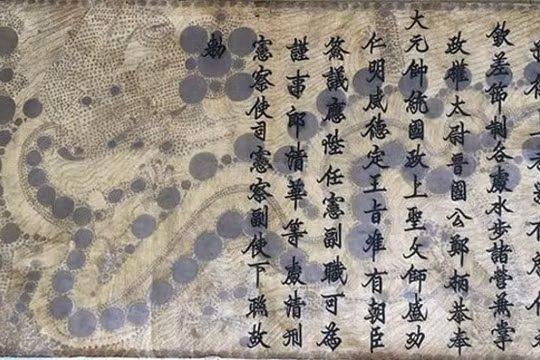 欽差節制各處水步諸營兼掌
政權太尉晉國公鄭柄恭奉
大元帥統國政上聖父師盛功
仁明威德定王旨准有朝臣
簽議應陞任憲副職可為
謹事郎清華等處清刑
憲察使司憲察副使下聯故
勅